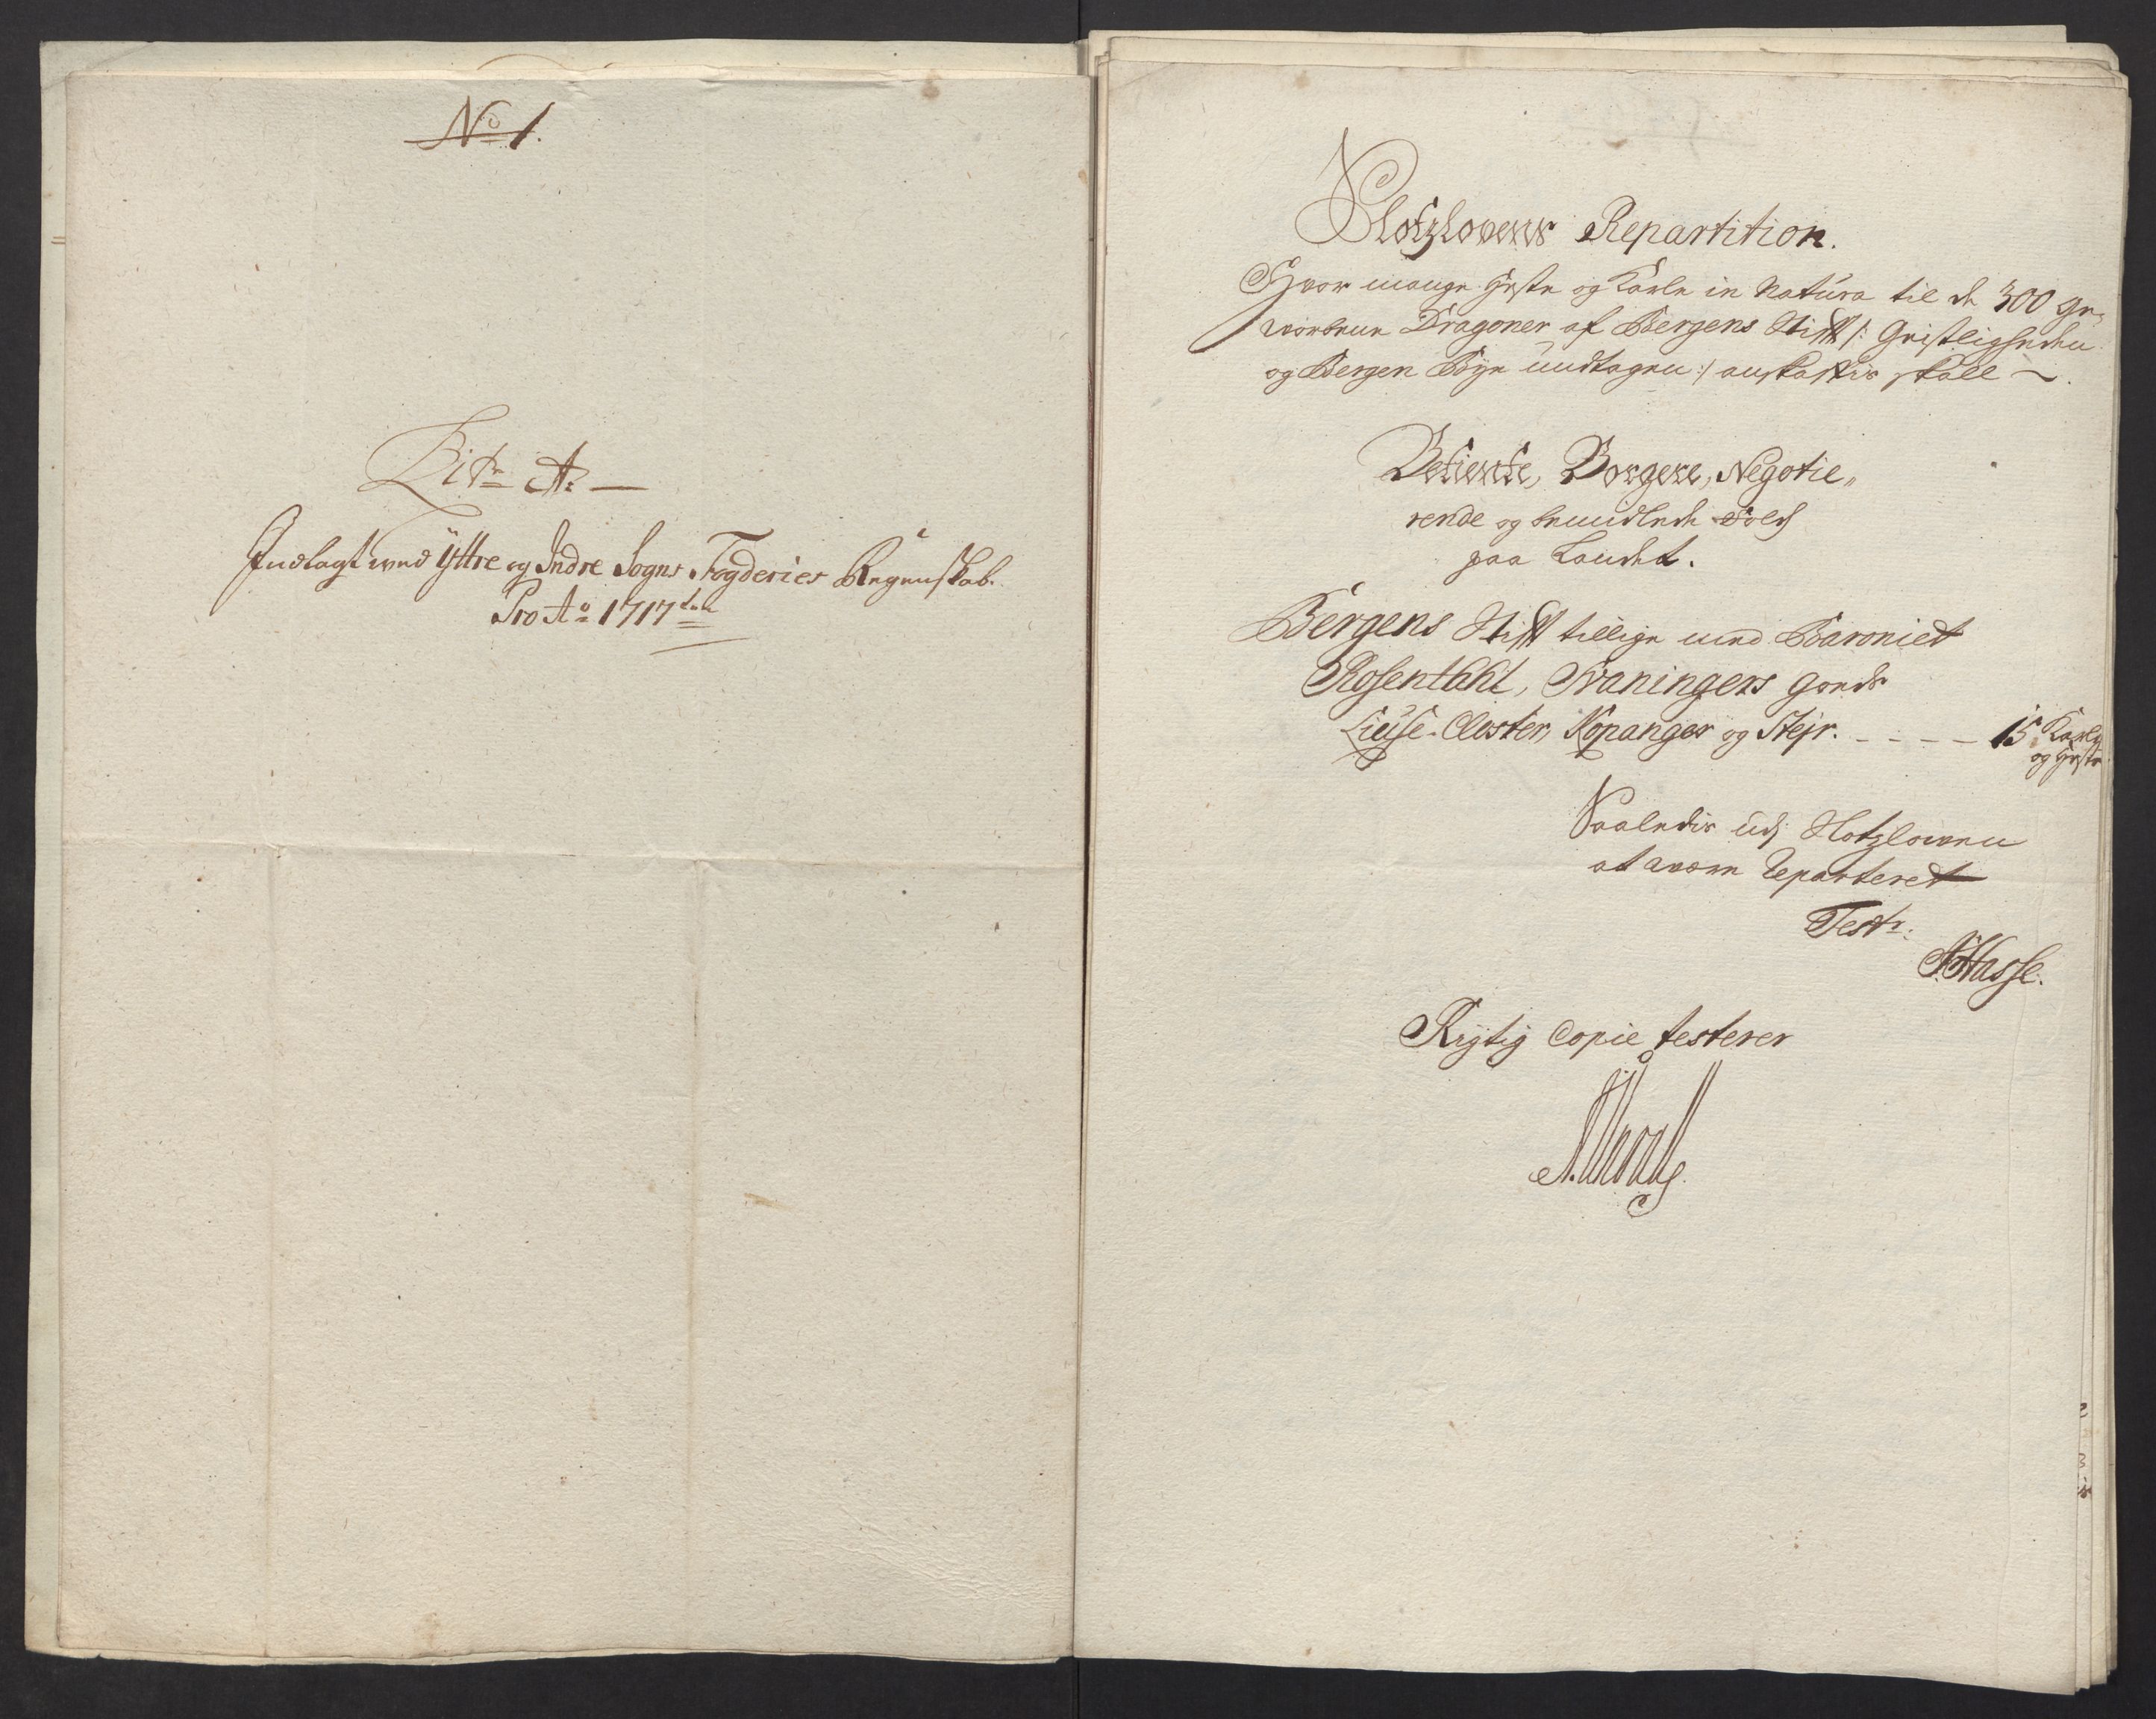 No 1.
Litr A:
Indlagt wed Yttre og Indre Sogns Fogderies Regenskab.
Pro Ao 1717den
Slotzlovens Repartition.
Hvor mange Heste og Karle in Natura til de 300 ge-
vorbene Dragoner af Bergens Stifft /: Geistligheden
og Bergen Bye undtagen :/ anskaffis skall
Betiente, Borgere, Negotie-
rende og bemidlede Folch
paa Landet.
Bergens Stifft tillige med Baroniet
Rosentahl, Svaningers Goeds
Liuse-Closter, Kopanger og Stejr. - - - - 15 Karle
og Heste
Saaledis udj Slotzlowen
at være Reparteret
Test:
Hasse.
Rigtig Copie testerer